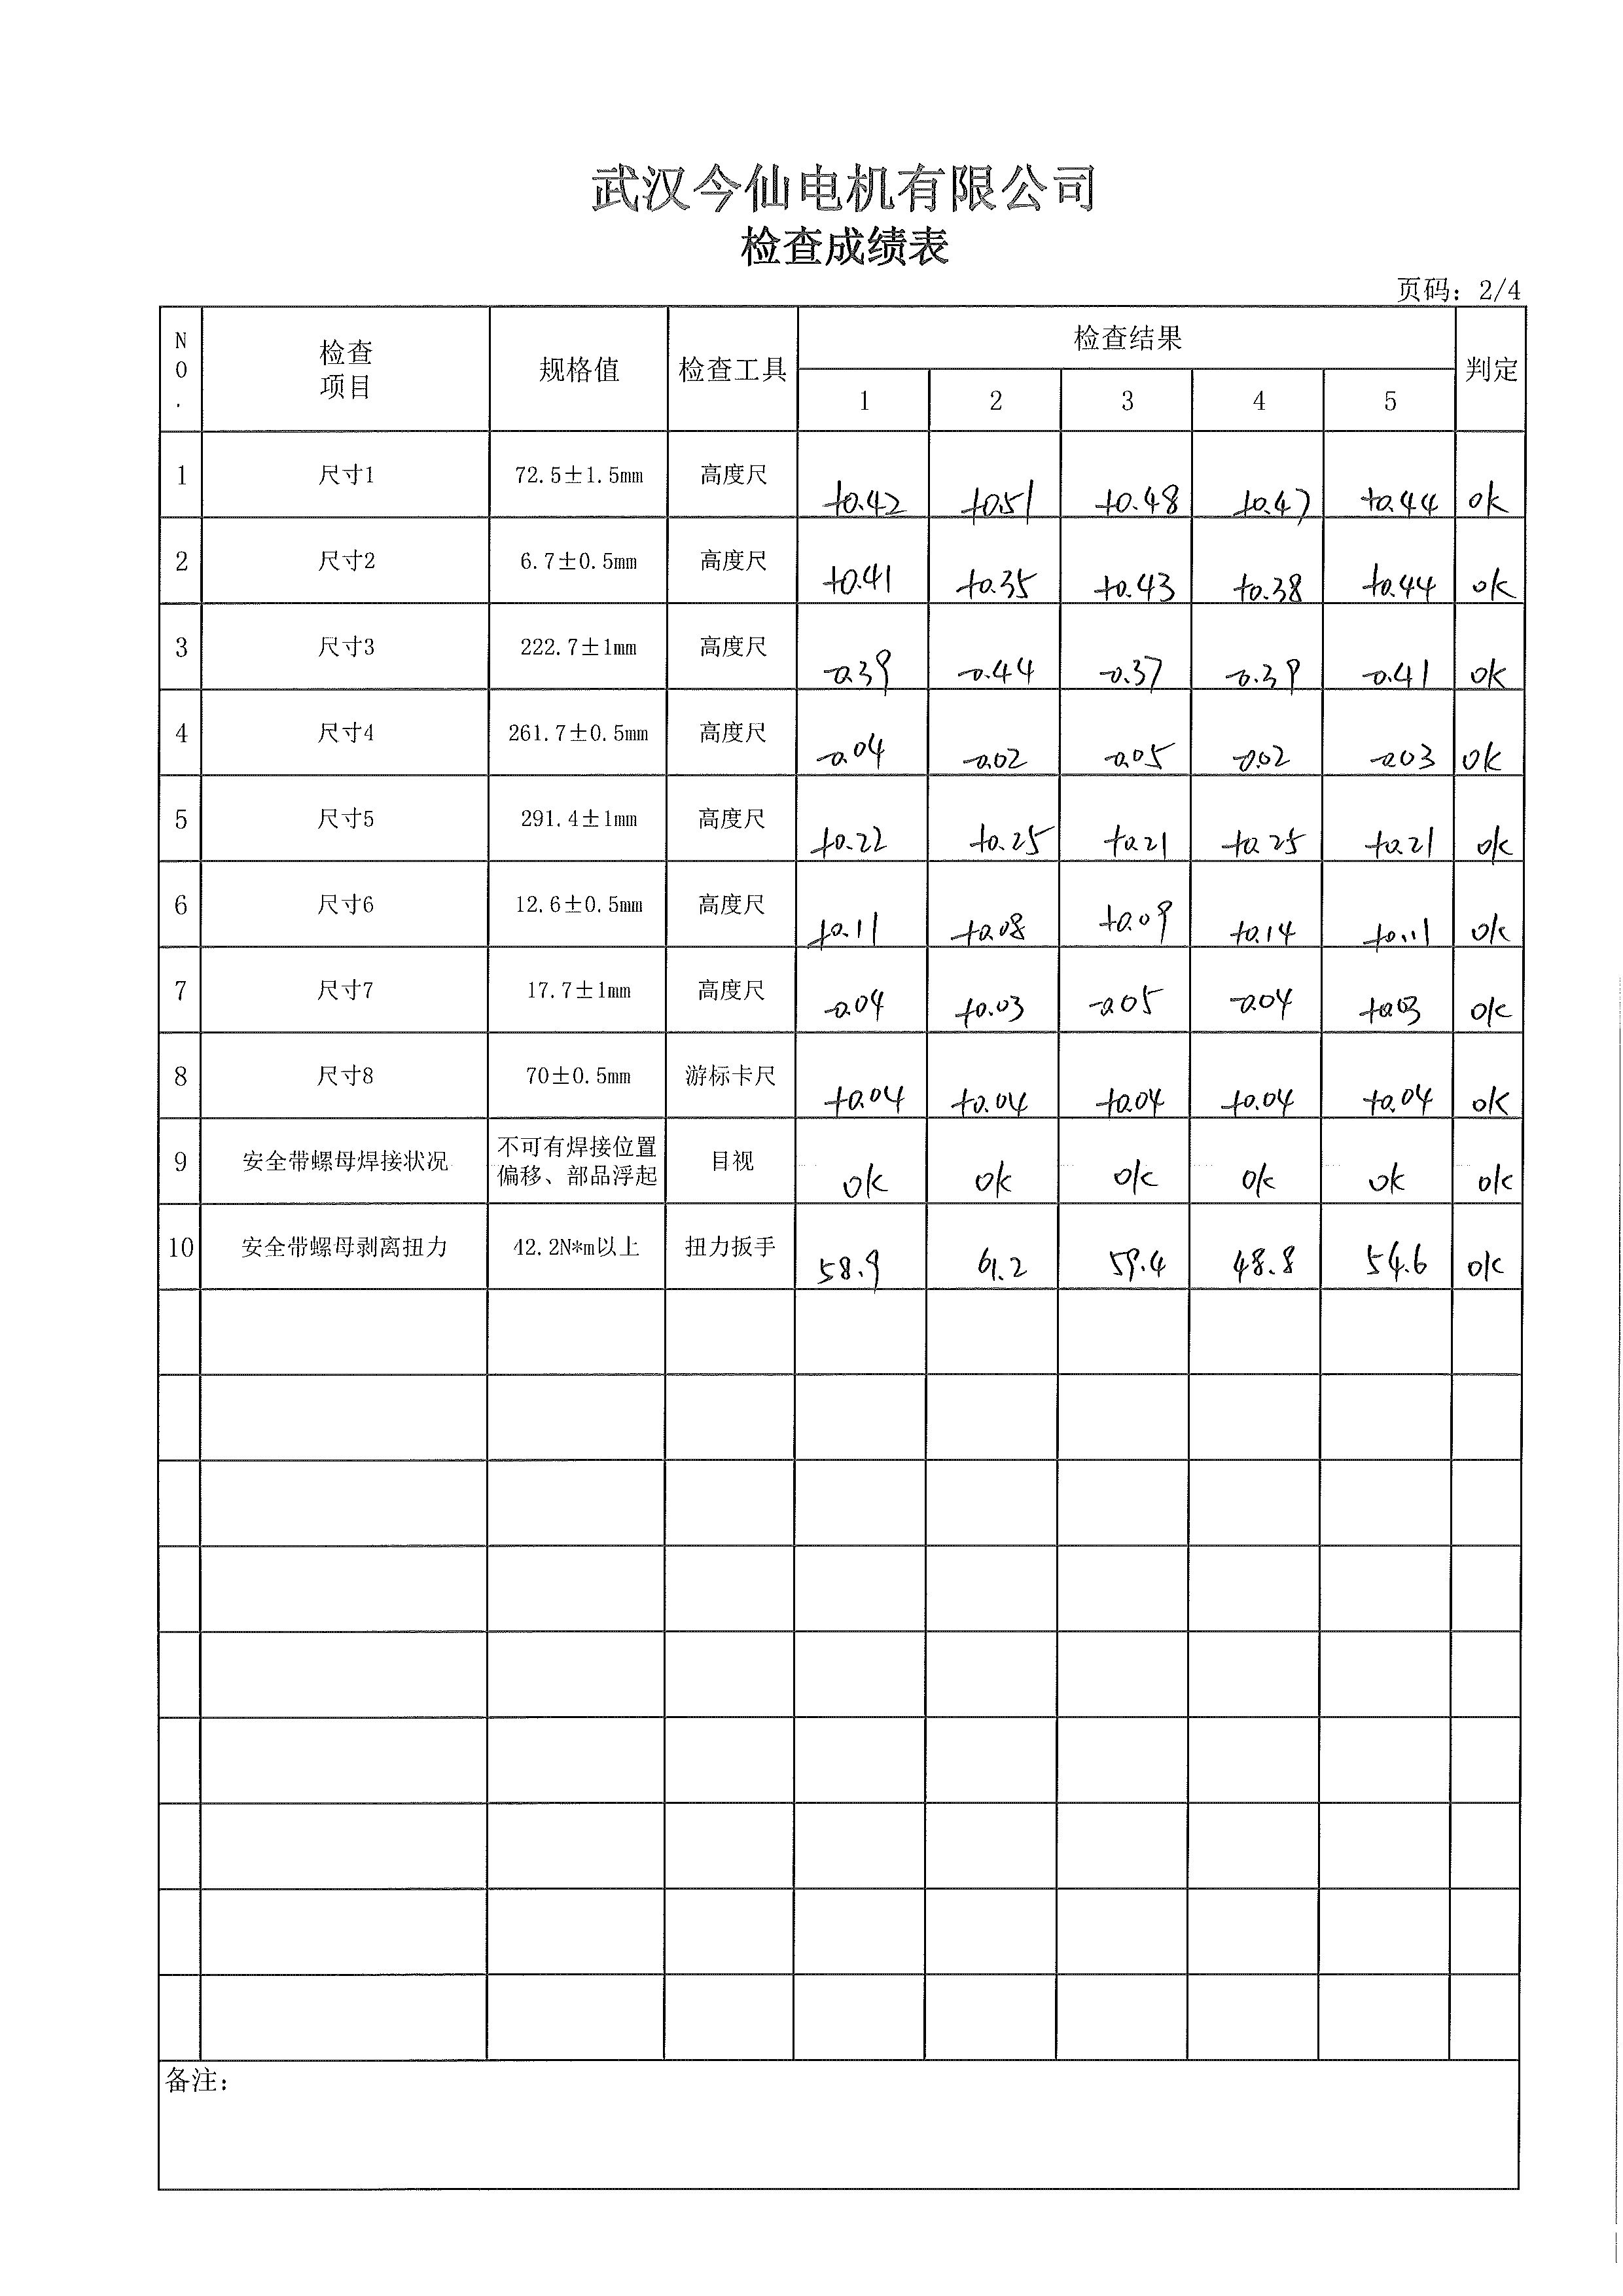 武汉今仙电机有限公司
检查成绩表
页码：2/4
NO. 检查项目 规格值 检查工具 检查结果 判定
1 2 3 4 5
1 尺寸1 72.5±1.5mm 高度尺 +0.42 +0.51 +0.48 +0.47 +0.44 ok
2 尺寸2 6.7±0.5mm 高度尺 +0.41 +0.35 +0.43 +0.38 +0.44 ok
3 尺寸3 222.7±1mm 高度尺 -0.39 -0.44 -0.37 -0.39 -0.41 ok
4 尺寸4 261.7±0.5mm 高度尺 -0.04 -0.02 -0.05 -0.02 -0.03 ok
5 尺寸5 291.4±1mm 高度尺 +0.22 +0.25 +0.21 +0.25 +0.21 ok
6 尺寸6 12.6±0.5mm 高度尺 +0.11 +0.08 +0.09 +0.14 +0.11 ok
7 尺寸7 17.7±1mm 高度尺 -0.04 +0.03 -0.05 -0.04 +0.03 ok
8 尺寸8 70±0.5mm 游标卡尺 +0.04 +0.04 +0.04 +0.04 +0.04 ok
9 安全带螺母焊接状况 不可有焊接位置偏移、部品浮起 目视 ok ok ok ok ok ok
10 安全带螺母剥离扭力 42.2N*m以上 扭力扳手 58.9 61.2 59.4 48.8 54.6 ok
备注：